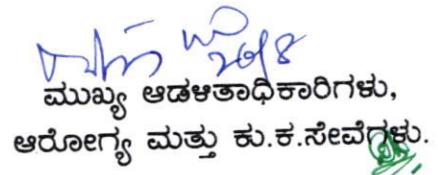 ಮುಖ್ಯ ಆಡಳಿತಾಧಿಕಾರಿಗಳು,
ಆರೋಗ್ಯ ಮತ್ತು ಕು.ಕ.ಸೇವೆಗಳು.